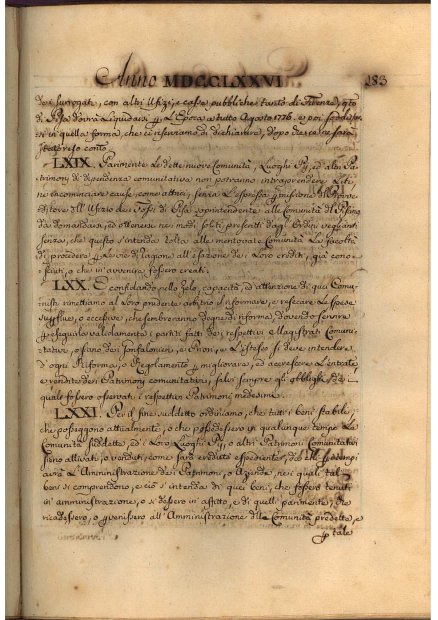 Anno MDCCLXXVI
183
dei surrogati, con altri Ufizi, e casse pubbliche tanto di Firenze, q.to
di Pisa dovrà Liquidarsi p. L'Epoca a tutto Agosto 1776. e poi soddisfar
si in quella forma, che ci riserviamo di dichiarare, dopo che ce ne sarà
stato reso conto.
LXIX. Parimente le dette nuove Comunità, Luoghi Pij, ed altri Pa-
trimonj di dipendenza comunitativa non potranno intraprendere liti,
nè incominciare cause, come attrici, senza L'espressa permissione del Provve-
ditore all'Ufizio dei Fossi di Pisa soprintendente alle Comunità del Pisano
da domandarsi, ed ottenersi nei modi soliti prescritti dagli Ordini veglianti
senza, che questo s'intenda tolta alle mentovate Comunità La facoltà
di procedere p. Le vie di ragione all'esazione dei Loro crediti, già cono-
sciuti, o che in avvenire fossero creati.
LXX. E confidando nello zelo, capacità, ed attenzione di quei Comu-
nisti rimettiamo al Loro prudente arbitrio il riformare, e resecare Le spese
superflue, o eccessive, che sembreranno degne di riforma, dovendo servire
p. eseguirlo validamente i partiti fatti dei respettivi Magistrati Comuni-
tativi, o siano dei Gonfalonieri, e Priori, e L'istesso si deve intendere
d'ogni Riforma, o Regolamento p. migliorare, ed accrescere L'entrate,
e rendite dei Patrimonj comunitativi, salvi sempre gli obblighi, dei
quali fossero onerati i respettivi Patrimonj medesimi.
LXXI. Per il fine suddetto ordiniamo, che tutti i beni stabili,
che posseggono attualmente, o che possedessero in qualunque tempo Le
Comunità suddette, ed i Loro Luoghi Pij, o altri Patrimonj Comunitativi
sieno allivellati, o venduti, come sarà creduto espediente, da chi
avrà L'Amministrazione dei Patrimonj, o Aziende, nei quali tali
beni si comprendono, e ciò s'intenda di quei beni, che fossero tenuti
in amministrazione, o si dassero in affitto, e di quelli parimente, che
ricadessero, o pervenissero all'Amministrazione delle Comunità predette, e
p. tale